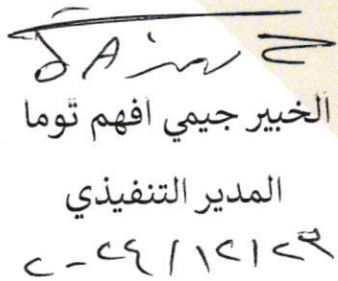 الخبير جيمي افهم توما
المدير التنفيذي
٢٠٢٤/١٢/٢٣